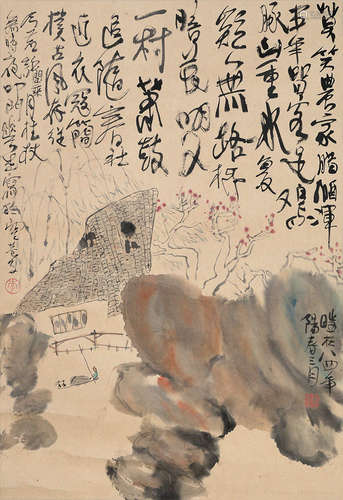 莫笑農家腊酒渾
丰年留客足鷄
豚山重水复
疑無路柳
暗花明又
一村簫鼓
追隨春社
近衣冠簡
樸古風存從
今若許閑乘月拄杖
無時夜叩門
時於八四年
陽春三月